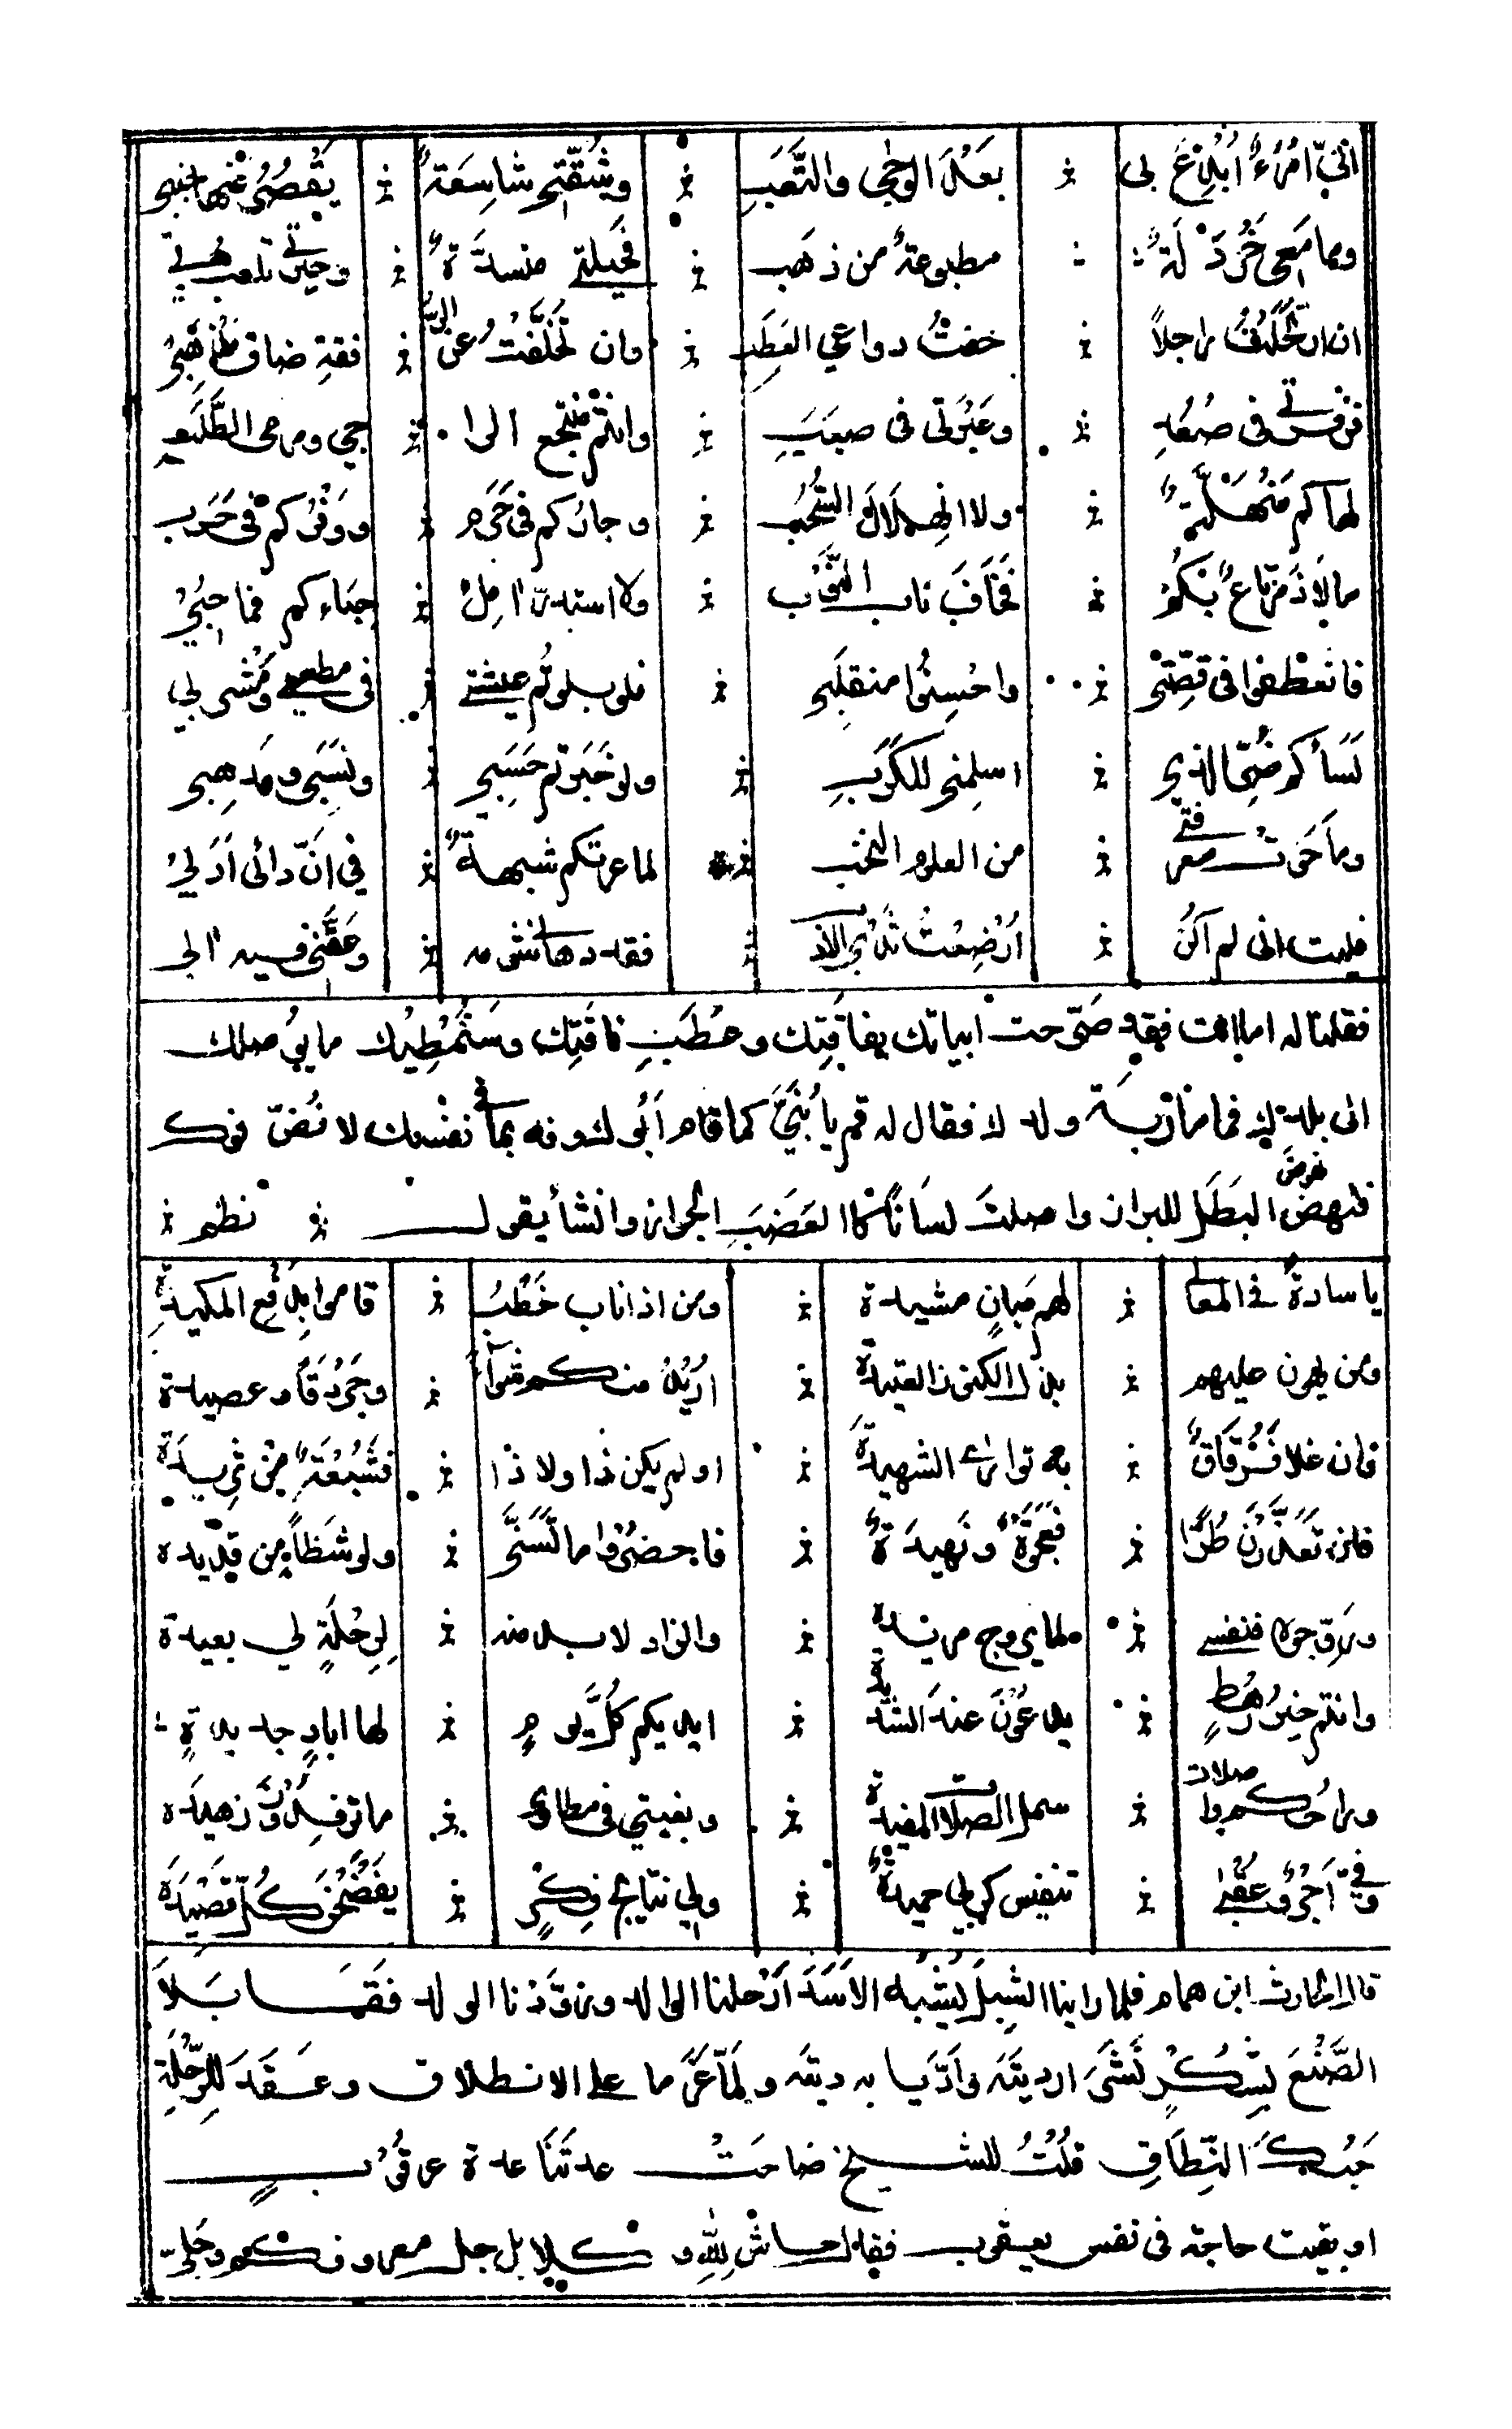 اني امرءٌ اُبْدِعَ بي ؞ بعدَ الوجٰى والتَّعَبِ ؞ وشُقّتي شاسِعَةٌ ؞ يَقْصُرُ عنها خببي
وما معي خَرْدَلَةٌ ؞ مطبوعةٌ من ذهب ؞ فحيلتي منسدَّةٌ ؞ وحيرتي تلعب بي
ان ارتحلتُ راجلاً ؞ خفتُ دواعي العَطَبِ ؞ وان تخلَّفتُ عن الر ؞ فقةِ ضاق مذهبي
فزفرتي في صُعُدٍ ؞ وعَبْرتي في صببَ ؞ وانتم منتجع الرا ؞ جي ومرمى الطَّلَب
لهاكم مُنْهَلَّةٌ ؞ ولا انهلالَ السُّحُبِ ؞ وجاركم في حَرَمٍ ؞ ووفركم في حَرَب
ما لاذ مرتاعٌ بكم ؞ فخافَ ناب النُّوَب ؞ ولا استدرّ اٰملٌ ؞ حباءكم فما حُبِيْ
فانعطفوا في قصّتي ؞ واحْسِنُوا منقلبي ؞ فلو بلوتُم عيشتي ؞ في مطعمي ومشربي
لَسَاءَكم ضُرّي الذي ؞ اسلمني للكُرَبِ ؞ ولو خَبَرتم حَسَبي ؞ ونَسَبي ومذهبي
وما حَوَتْ معرفتي ؞ من العلوم النخب ؞ لما عرتكم شبهةٌ ؞ في انّ دائي اَدَبي
فليت اني لم اكن ؞ اُرْضِعْتُ ثَدْيَ الادب ؞ فقد دهاني شومه ؞ وعَقَّني فيه ابي
فقلنا له اما انت فقد صرّحت ابياتك بفاقتِك وعَطَبِ ناقَتِك وسَنُمْطِيْك ما يُوصلك
الى بلدك فما مأربة ولدك فقال له قم يا بُنَيَّ كما قام ابوك وفه بما في نفسك لا فُضّ فوك
فنهض نهوضَ البَطَل للبراز واصلتَ لسانًا كالعَضَبِ الجراز وانشأ يقول ؞ نظم ؞
يا سادةً في المعالي ؞ لهم مَبانٍ مشيدة ؞ ومن اذا ناب خَطْبٌ ؞ قاموا بِدَفْعِ المكيدة
ومن يهون عليهم ؞ بذل الكنوز العتيدة ؞ اُرِيْدُ منكم شواءً ؞ وجَرْدَقًا وعصيدة
فان غلا فَرُقَاقٌ ؞ به توارى الشهيدة ؞ او لم يكن ذا ولا ذا ؞ فشُبْعَةٌ من ثريدة
فان تعذّرْنَ طُرًّا ؞ فعَجْوَةٌ ونَهيدَةٌ ؞ فاحضروا ما تَسَنَّى ؞ ولو شَظًا من قديده
وروّجوه فنفسي ؞ لما يروج مريدة ؞ والزاد لا بد منه ؞ لِرِحْلَةٍ لي بعيدة
وانتم خيرُ رَهْطٍ ؞ يدعَوْنَ عند الشديدة ؞ ايديكم كُلَّ يومٍ ؞ لها ايادٍ جديدةٍ
وراحُكم واصلات ؞ شمل الصلات المفيدة ؞ وبغيتي في مطاوي ؞ ما ترفدون زهيده
وفيَّ اَجْرٌ وعُقْبٰى ؞ تنفيس كربي حميدةٌ ؞ ولي نتايج فكرٍ ؞ يَفْضَحْنَ كُلَّ قصيدَة
قال الحارث ابن همام فلما راينا الشِبلَ يُشْبِهُ الاَسَدَ اَرْحلنا الوالد وزوَّدنا الولد فقَابَلَا
الصُّنْعَ بِشُكْرٍ نَشَرَ ارديته واَدَّيا به ديته ولمّا عَزَما على الانطلاق وعَقَدَا للرِّحْلَةِ
حُبُكَ النِّطَاقِ قلتُ للشيخ ضاهَتْ عِدتُنَا عدة عرقُوبٍ
او بقيت حاجة في نفس يعقوب فقال حاش لِلّٰهِ وكلا بل جل معروفكم وجلّى